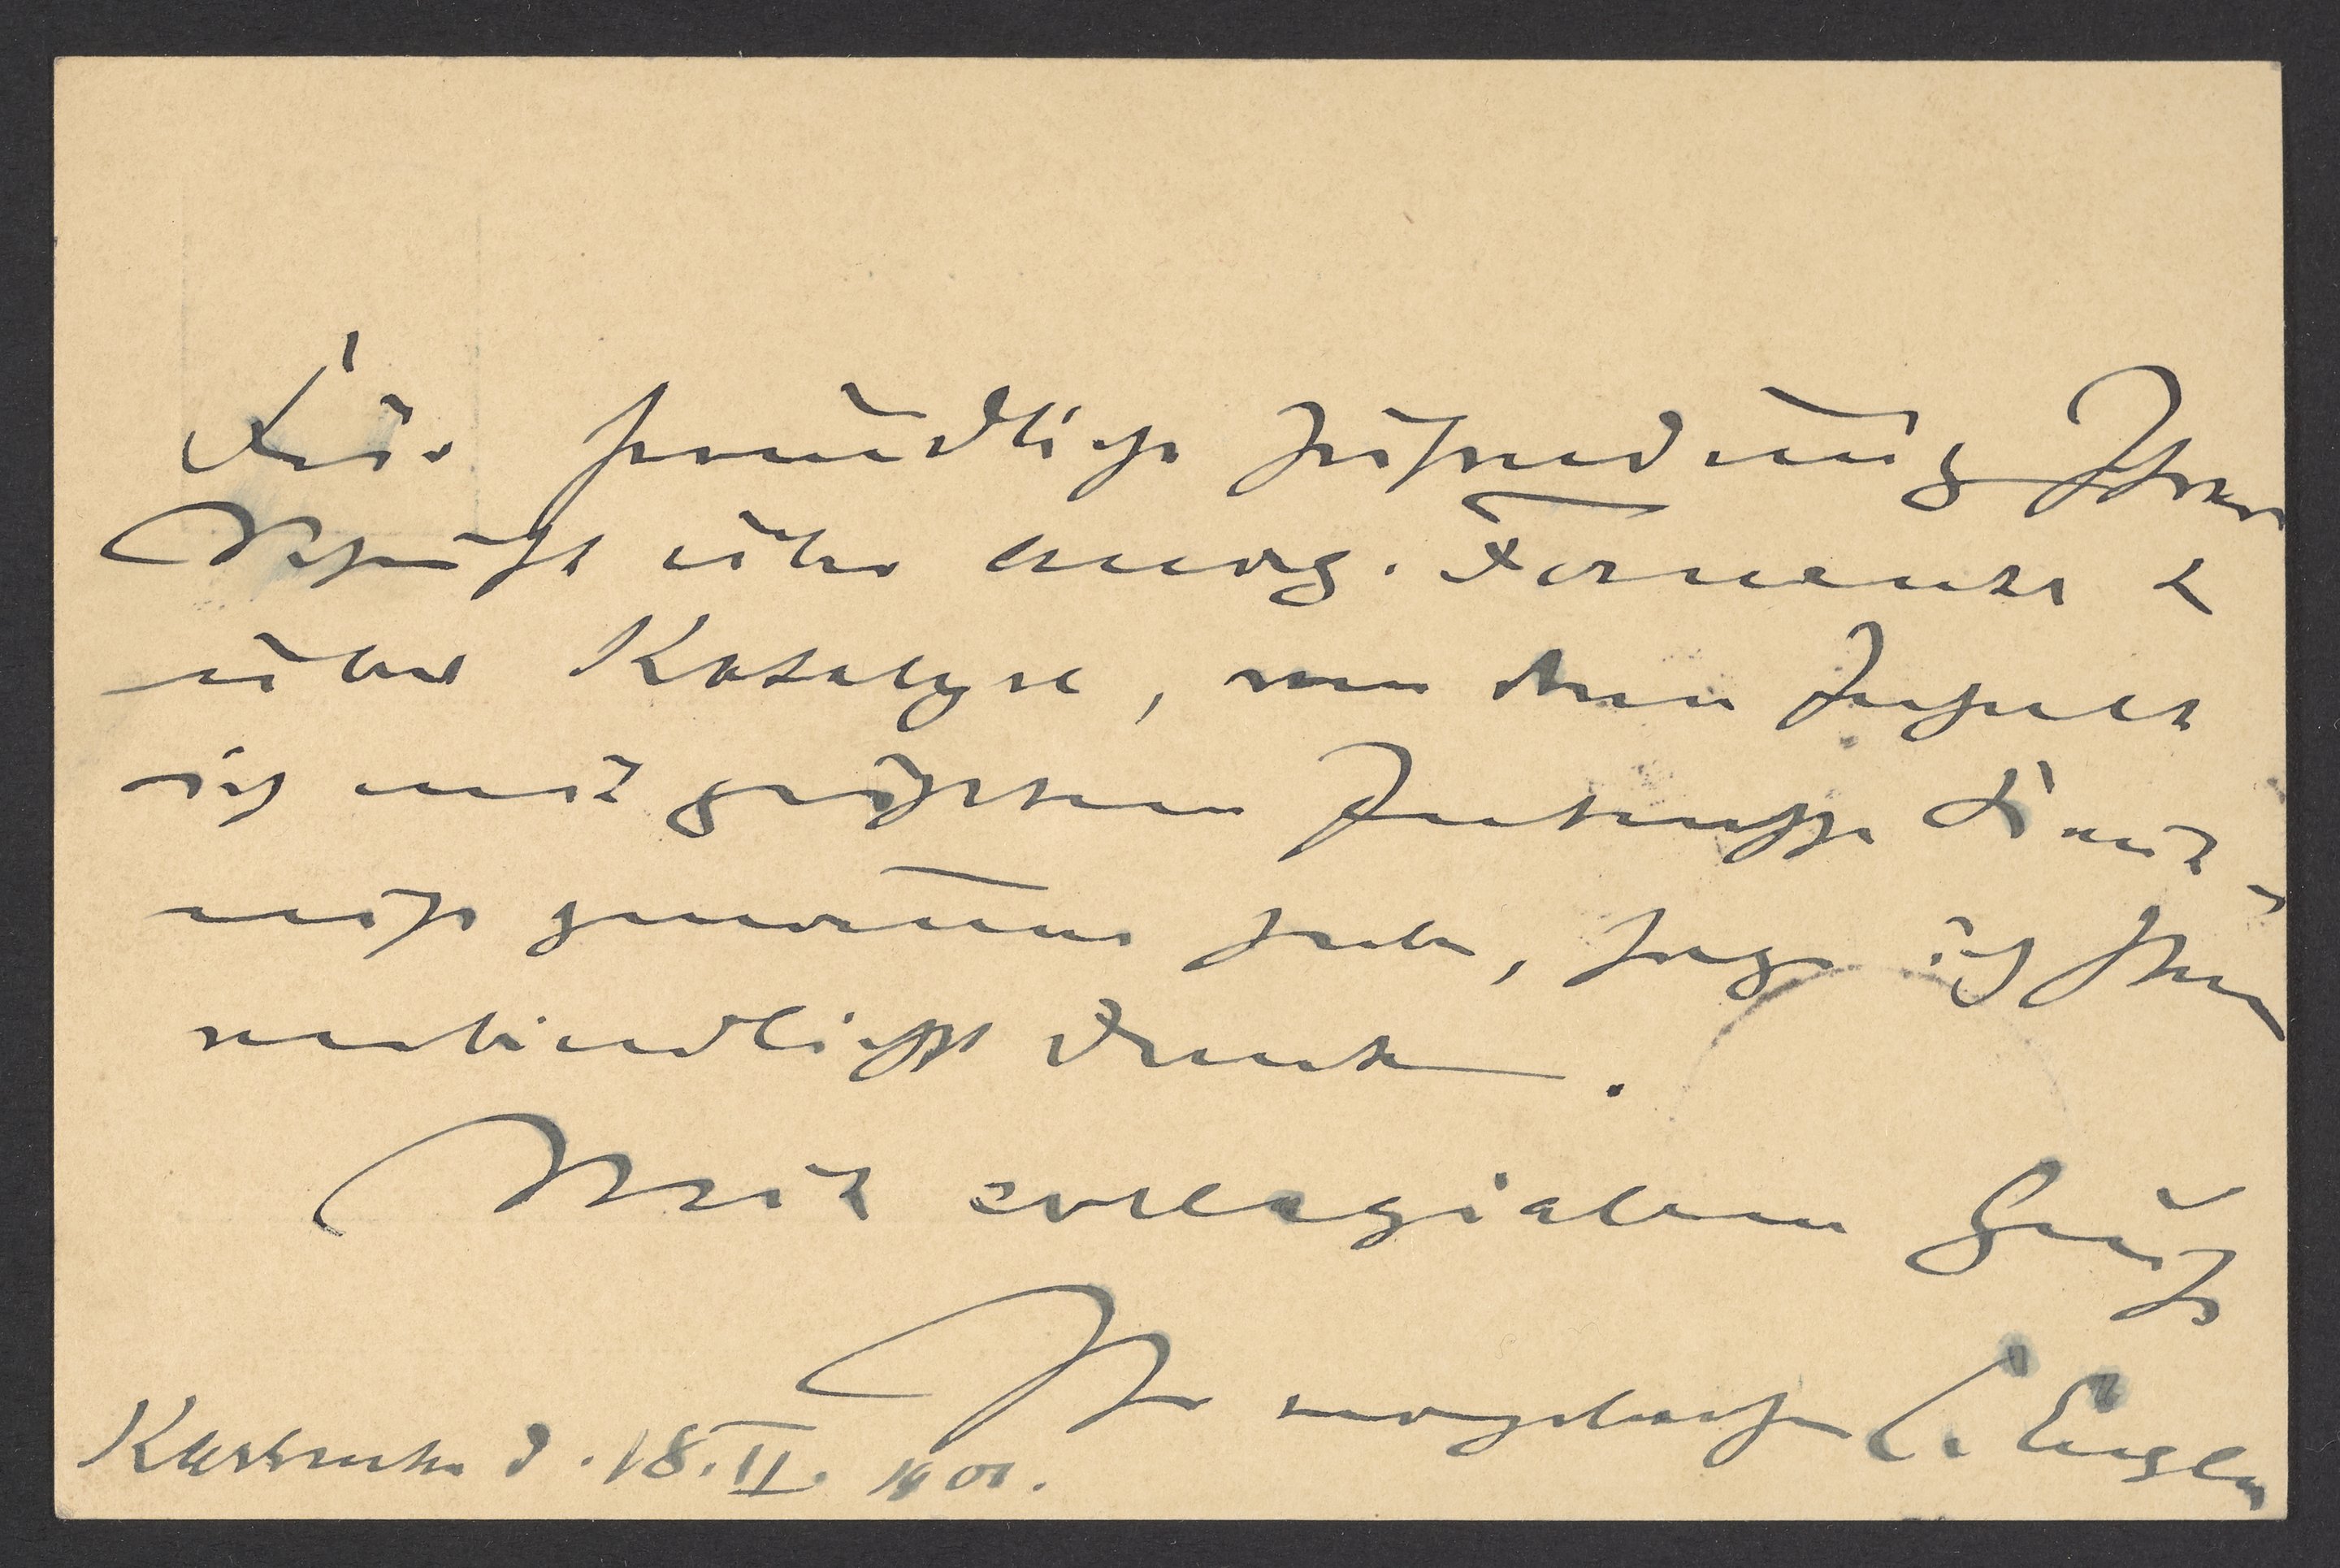 Für freundliche Zusendung Ihrer
Versuche über anorg. Fermente &
über Katalyse, von deren Inhalt
ich mit größtem Interesse Kennt-
niß genommen habe, sage ich Ihnen
verbindlichst Dank.
Mit collegialem Gruß
Ihr ergebenster C. Engler
Karlsruhe d. 18.II. 1901.